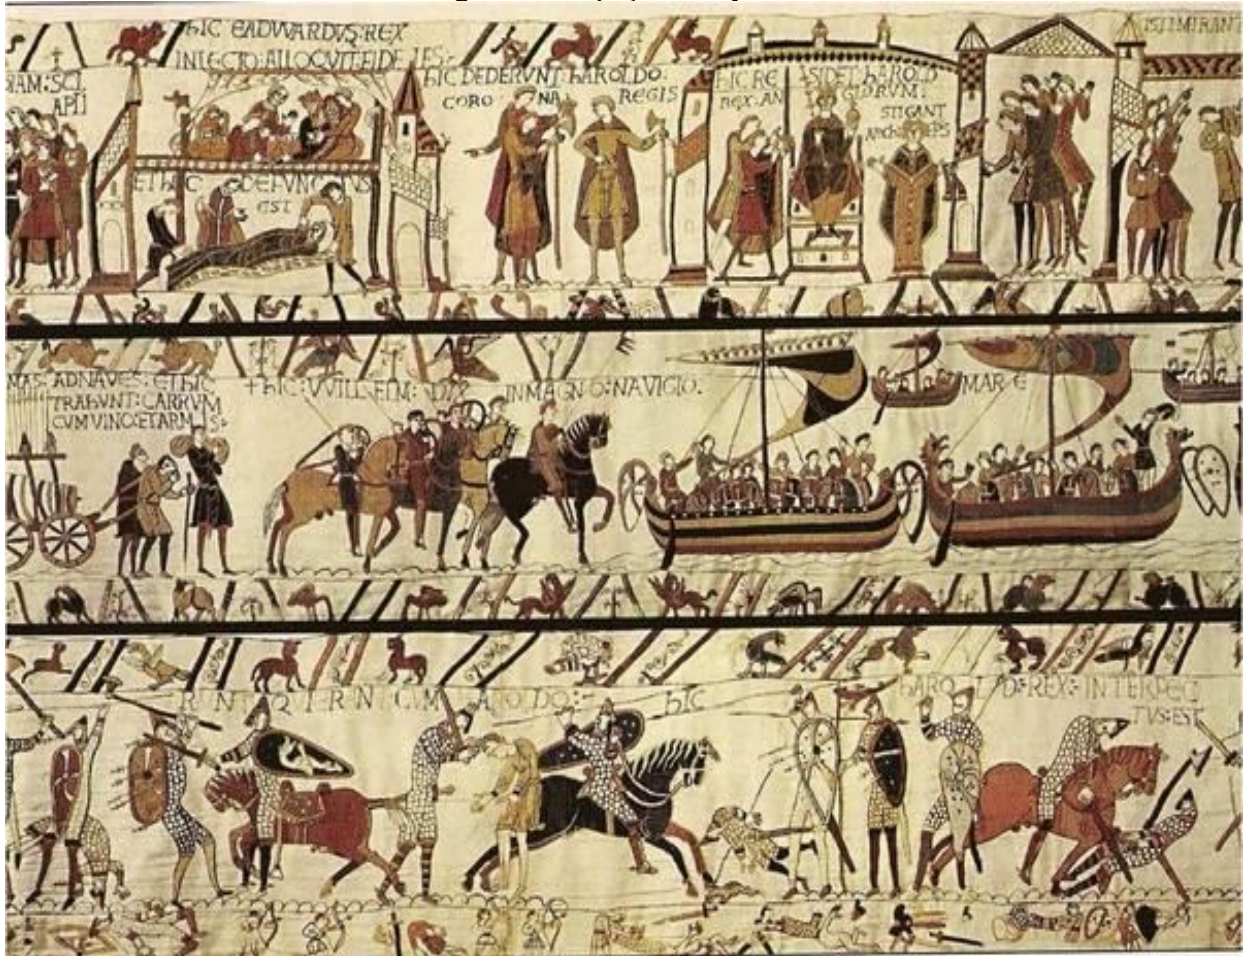 HIC EADVVARDVS: REX
IN LECTO: ALLOQVIT: FIDELES:
ISTI MIRANT
RAM: SCI
APLI
HIC DEDERVNT: HAROLDO:
CORONA REGIS
HIC RESIDET: HAROLD
REX: ANGLORVM:
STIGANT
ARCHIEPS
ET HIC DEFVNCTVS
EST
AD NAVES: ET HIC
TRAHVNT: CARRVM
CVM VINO: ET ARMIS:
+ HIC: VVILLELM: DVX IN MAGNO: NAVIGIO:
MARE
RVNT QVI ERANT CVM HAROLDO: HIC
HAROLD: REX: INTERFEC
TVS: EST